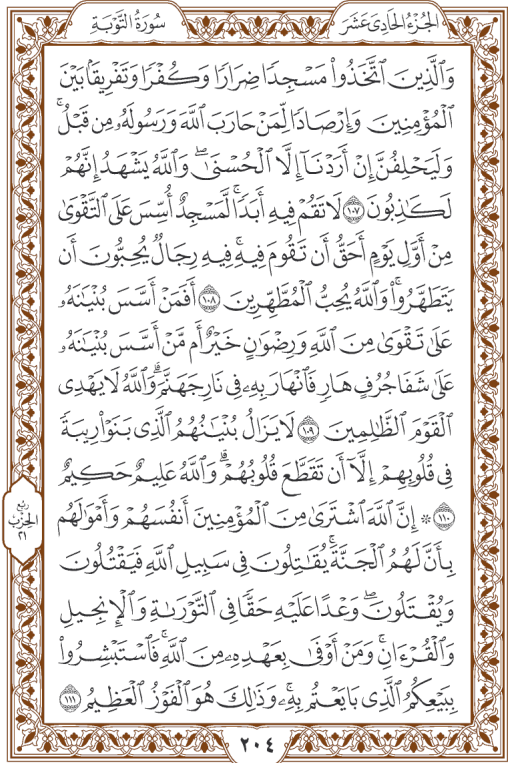 الجُزْءُ الحَادِى عَشَرَ
سُورَةُ التَّوْبَةِ
وَٱلَّذِينَ ٱتَّخَذُوا۟ مَسْجِدًا ضِرَارًا وَكُفْرًا وَتَفْرِيقًۢا بَيْنَ
ٱلْمُؤْمِنِينَ وَإِرْصَادًا لِّمَنْ حَارَبَ ٱللَّهَ وَرَسُولَهُۥ مِن قَبْلُ ۚ
وَلَيَحْلِفُنَّ إِنْ أَرَدْنَآ إِلَّا ٱلْحُسْنَىٰ ۖ وَٱللَّهُ يَشْهَدُ إِنَّهُمْ
لَكَـٰذِبُونَ ١٠٧ لَا تَقُمْ فِيهِ أَبَدًا ۚ لَّمَسْجِدٌ أُسِّسَ عَلَى ٱلتَّقْوَىٰ
مِنْ أَوَّلِ يَوْمٍ أَحَقُّ أَن تَقُومَ فِيهِ ۚ فِيهِ رِجَالٌ يُحِبُّونَ أَن
يَتَطَهَّرُوا۟ ۚ وَٱللَّهُ يُحِبُّ ٱلْمُطَّهِّرِينَ ١٠٨ أَفَمَنْ أَسَّسَ بُنْيَـٰنَهُۥ
عَلَىٰ تَقْوَىٰ مِنَ ٱللَّهِ وَرِضْوَٰنٍ خَيْرٌ أَم مَّنْ أَسَّسَ بُنْيَـٰنَهُۥ
عَلَىٰ شَفَا جُرُفٍ هَارٍ فَٱنْهَارَ بِهِۦ فِى نَارِ جَهَنَّمَ ۗ وَٱللَّهُ لَا يَهْدِى
ٱلْقَوْمَ ٱلظَّـٰلِمِينَ ١٠٩ لَا يَزَالُ بُنْيَـٰنُهُمُ ٱلَّذِى بَنَوْا۟ رِيبَةً
فِى قُلُوبِهِمْ إِلَّآ أَن تَقَطَّعَ قُلُوبُهُمْ ۗ وَٱللَّهُ عَلِيمٌ حَكِيمٌ
١١٠ ۞ إِنَّ ٱللَّهَ ٱشْتَرَىٰ مِنَ ٱلْمُؤْمِنِينَ أَنفُسَهُمْ وَأَمْوَٰلَهُم
بِأَنَّ لَهُمُ ٱلْجَنَّةَ ۚ يُقَـٰتِلُونَ فِى سَبِيلِ ٱللَّهِ فَيَقْتُلُونَ
وَيُقْتَلُونَ ۖ وَعْدًا عَلَيْهِ حَقًّا فِى ٱلتَّوْرَىٰةِ وَٱلْإِنجِيلِ
وَٱلْقُرْءَانِ ۚ وَمَنْ أَوْفَىٰ بِعَهْدِهِۦ مِنَ ٱللَّهِ ۚ فَٱسْتَبْشِرُوا۟
بِبَيْعِكُمُ ٱلَّذِى بَايَعْتُم بِهِۦ ۚ وَذَٰلِكَ هُوَ ٱلْفَوْزُ ٱلْعَظِيمُ ١١١
ربع
الحزب
٢١
٢٠٤